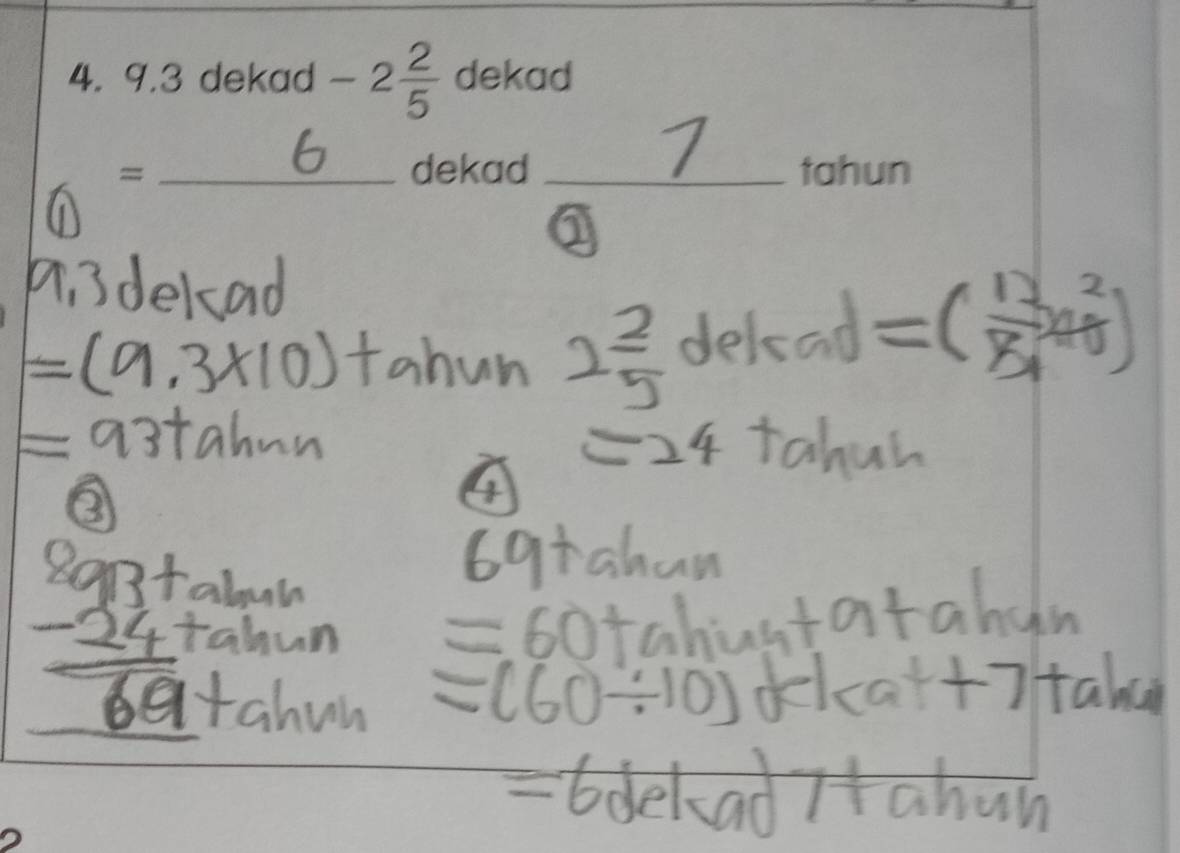 4. 9.3 dekad - 2 2/5 dekad
= 6 dekad 7 tahun
①
9.3 dekad
= (9.3×10) tahun
= 93 tahun
②
2 2/5 dekad = (12/5 × 10) 2 1
= 24 tahun
③
8 9 13 tahun
- 24 tahun
69 tahun
④
69 tahun
= 60 tahun + 9 tahun
= (60÷10) dekat + 7 tahu
= 6 dekad 7 tahun